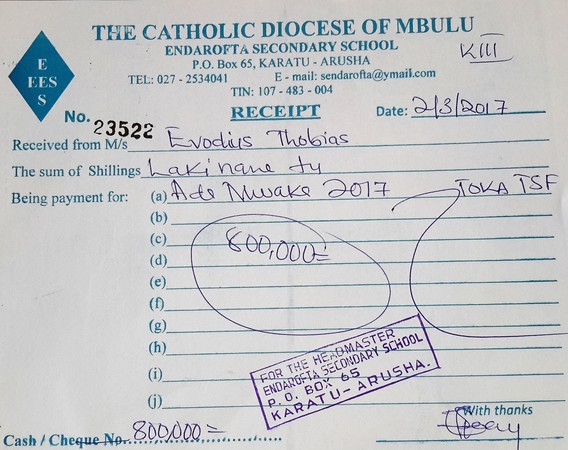 THE CATHOLIC DIOCESE OF MBULU
ENDAROFTA SECONDARY SCHOOL
P.O. Box 65, KARATU - ARUSHA
TEL: 027 - 2534041 E - mail: sendarofta@ymail.com
TIN: 107 - 483 - 004
E
EES
S
KIII
No. 23522 RECEIPT Date: 2/3/2017
Received from M/s Evodius Thobias
The sum of Shillings Laki nane tu
Being payment for: (a) Ada Mwaka 2017 TOKA TSF
(b)
(c) 800,000=
(d)
(e)
(f)
(g)
(h)
(i)
(j)
FOR THE HEADMASTER
ENDAROFTA SECONDARY SCHOOL
P. O. BOX 65
KARATU - ARUSHA.
With thanks
Cash / Cheque No. 800,000=